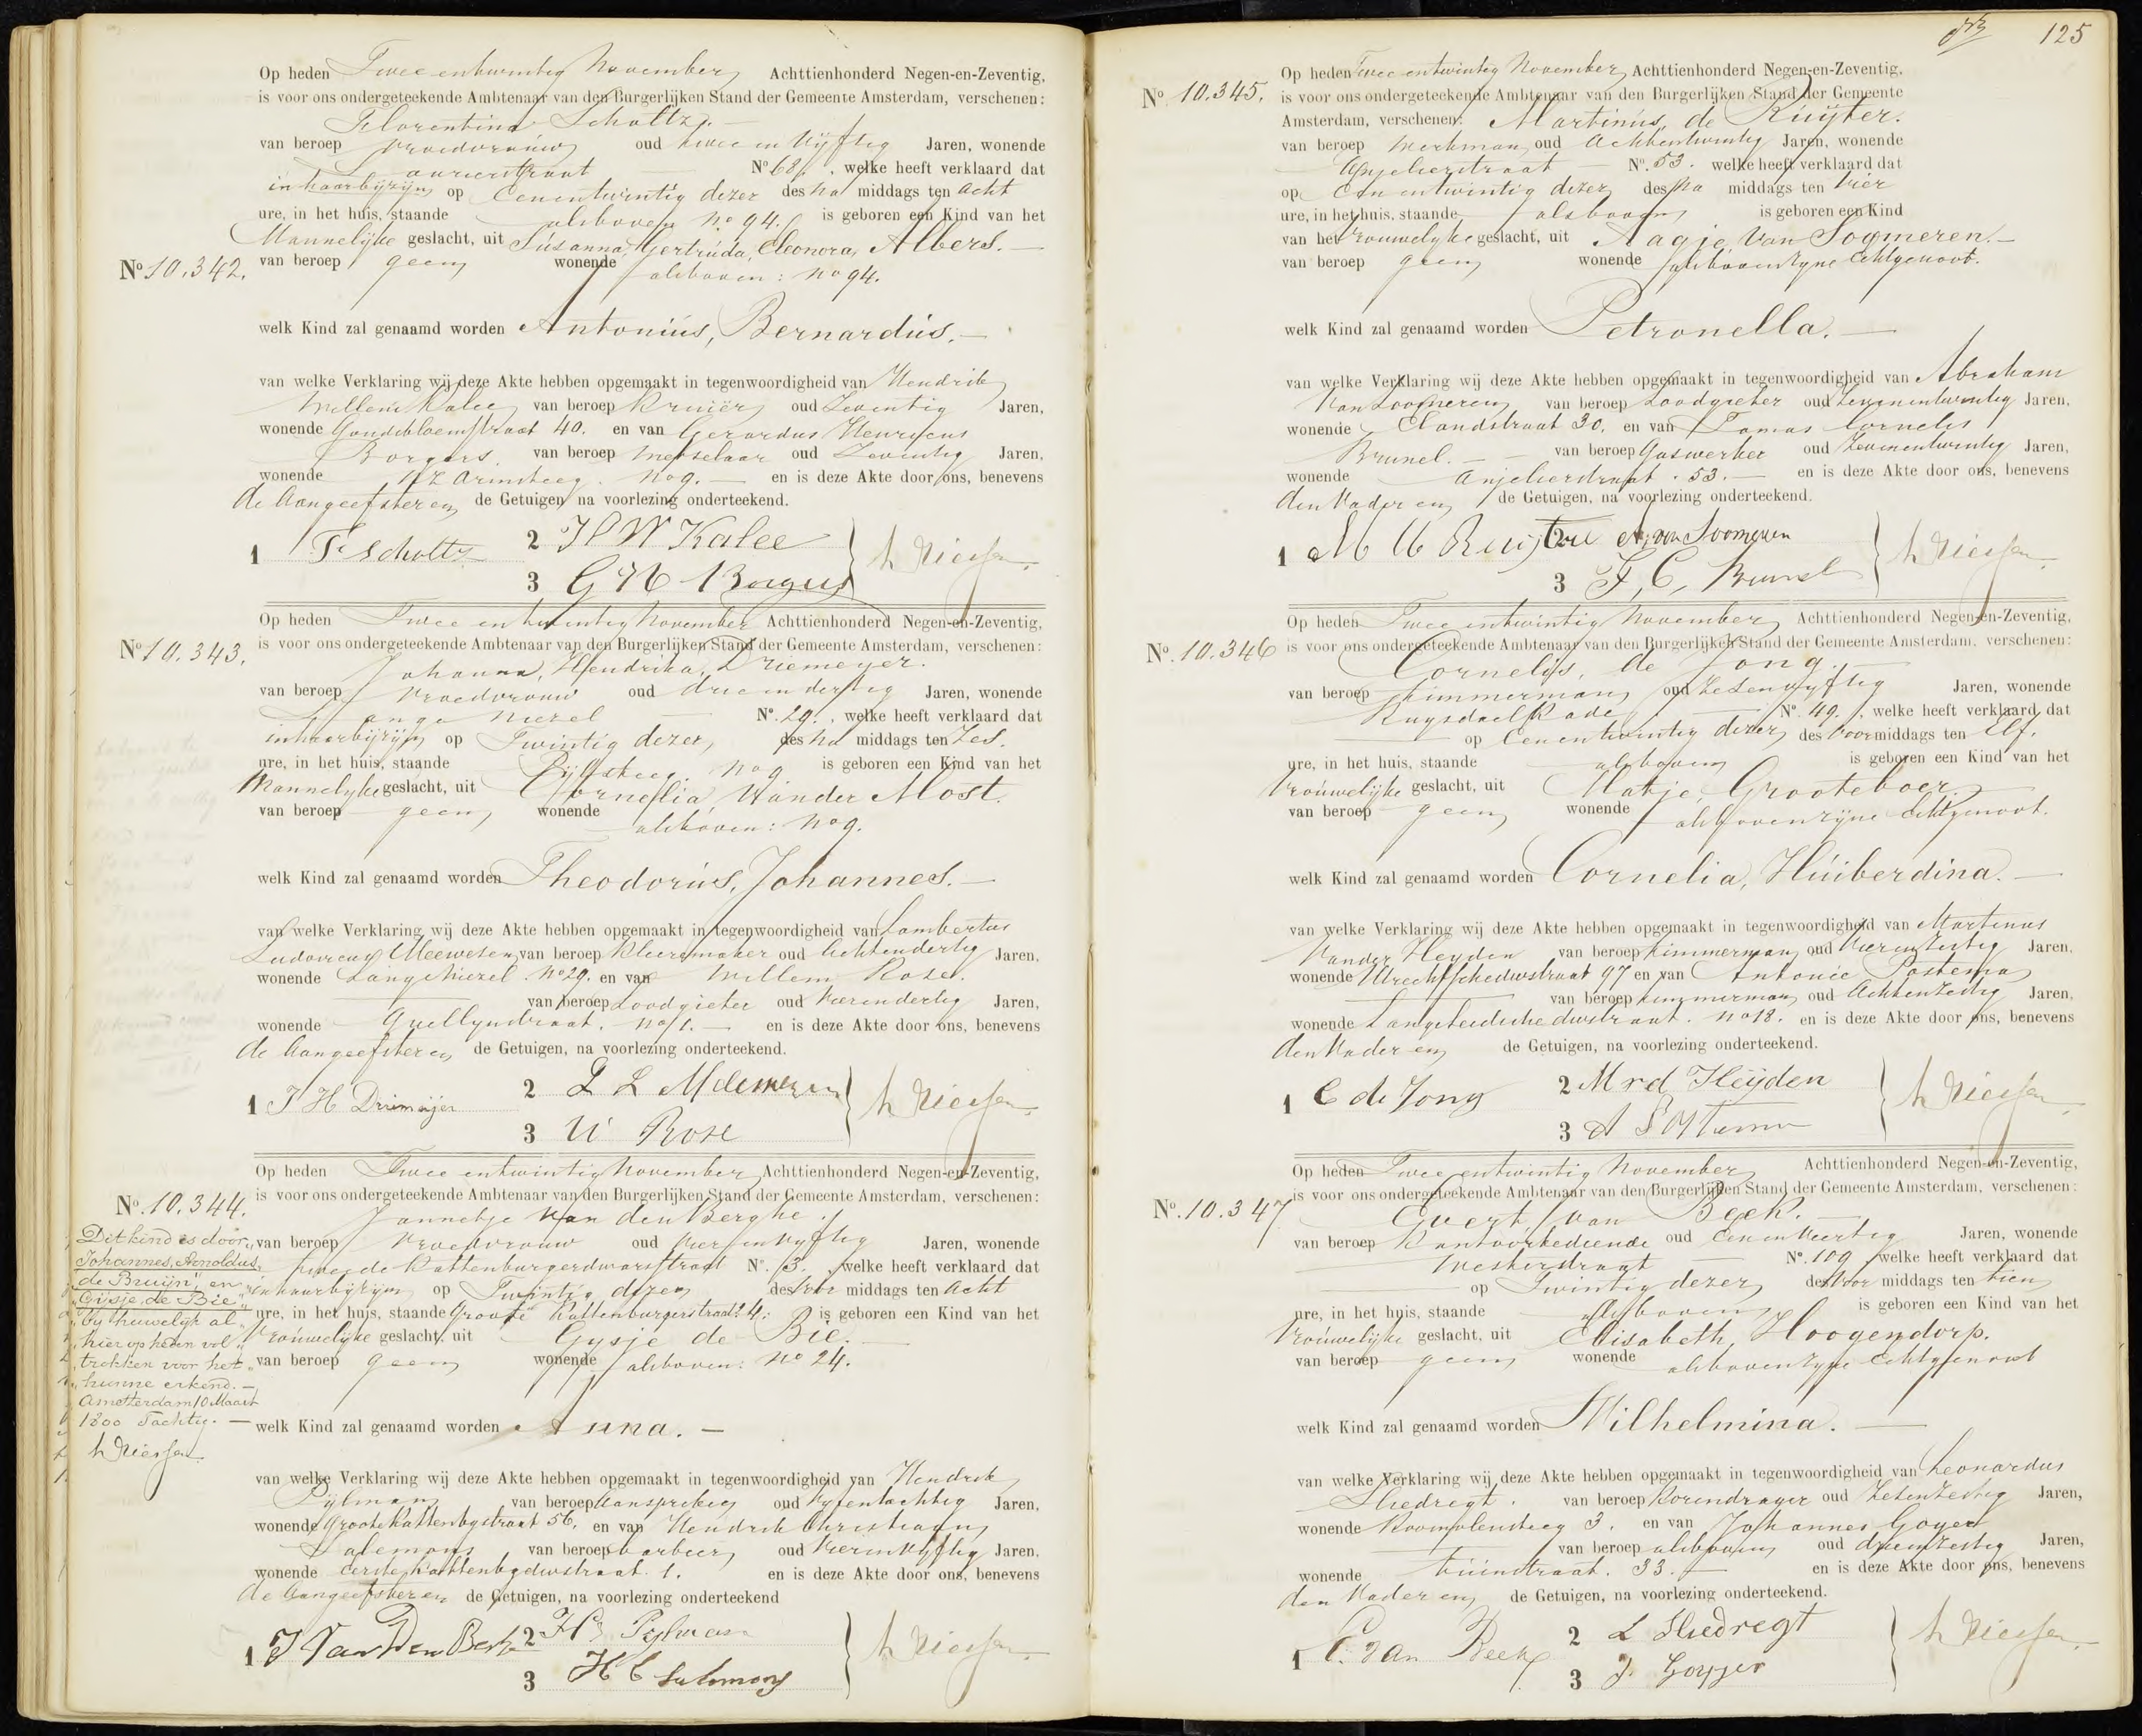 Op heden Twee en twintig November Achttienhonderd Negen-en-Zeventig,
is voor ons ondergeteekende Ambtenaar van den Burgerlijken Stand der Gemeente Amsterdam, verschenen:
Florentina Scholtz.
van beroep Vroedvrouw oud twee en Vijftig Jaren, wonende
Laurierstraat No 68. welke heeft verklaard dat
in haar bijzijn op Eenentwintig dezer des Na middags ten Acht
ure, in het huis, staande alsboven No 94. is geboren een Kind van het
Mannelijke geslacht, uit Susanna, Gertruda, Eleonora, Albers.
No 10.342. van beroep geen wonende alsboven: No 94.
welk Kind zal genaamd worden Antonius, Bernardus.
van welke Verklaring wij deze Akte hebben opgemaakt in tegenwoordigheid van Hendrik
Willem Kalee van beroep Kruiër oud Zeventig Jaren,
wonende Goudsbloemstraat 40. en van Gerardus Henricus
Borgers van beroep Metselaar oud Zeventig Jaren,
wonende NZ Armsteeg No 9. en is deze Akte door ons, benevens
de Aangeefster en de Getuigen na voorlezing onderteekend.
1 F Scholtz 2 H W Kalee
3 G H Borgers
Op heden Twee en twintig November Achttienhonderd Negen-en-Zeventig,
No 10.343. is voor ons ondergeteekende Ambtenaar van den Burgerlijken Stand der Gemeente Amsterdam, verschenen:
Johanna, Hendrika, Driemeyer.
van beroep Vroedvrouw oud drie en dertig Jaren, wonende
Lange Niezel No. 29. welke heeft verklaard dat
in haar bijzijn op Twintig dezer des Na middags ten Zes.
ure, in het huis, staande Pijlsteeg. No 9. is geboren een Kind van het
Mannelijke geslacht, uit Cornelia, Vander Most.
van beroep geen wonende alsboven: No 9.
welk Kind zal genaamd worden Theodorus, Johannes.
van welke Verklaring wij deze Akte hebben opgemaakt in tegenwoordigheid van Lambertus
Ludovicus Meewesen van beroep Kleermaker oud Achtendertig Jaren,
wonende Lange Niezel No 29. en van Willem Rose.
van beroep Loodgieter oud Vierendertig Jaren,
wonende Quellynstraat. No 1. en is deze Akte door ons, benevens
de Aangeefster en de Getuigen, na voorlezing onderteekend.
1 J H Driemeijer 2 L L Meewesen
3 W Rose
Op heden Twee en twintig November Achttienhonderd Negen-en-Zeventig,
No. 10.344. is voor ons ondergeteekende Ambtenaar van den Burgerlijken Stand der Gemeente Amsterdam, verschenen:
Jannetje Van den Berghe.
van beroep Vroedvrouw oud Vier en Vijftig Jaren, wonende
tweede Kattenburgerdwarsstraat No. 13. welke heeft verklaard dat
in haar bijzijn op Twintig dezer des Voor middags ten Acht
ure, in het huis, staande Groote Kattenburgerstraat 24. is geboren een Kind van het
Vrouwelijke geslacht, uit Gijsje de Bie.
van beroep geen wonende alsboven: No 24.
welk Kind zal genaamd worden Anna.
van welke Verklaring wij deze Akte hebben opgemaakt in tegenwoordigheid van Hendrik
Pijlman van beroep Aanspreker oud Vijfentachtig Jaren,
wonende Groote Kattenbgstraat 56. en van Hendrik Christiaan
Salemons van beroep barbier oud Vierenvijftig Jaren,
wonende Eerste Kattenbgdwstraat 1. en is deze Akte door ons, benevens
de Aangeefster en de Getuigen, na voorlezing onderteekend
1 J Van Den Berghe 2 H Pijlman
3 H C Salomons
Dit kind is door
Johannes, Arnoldus,
de Bruijn, en
Gijsje, de Bie
by huwelijk al-
hier op heden vol-
trokken voor het
hunne erkend. -
Amsterdam 10 Maart
1800 Tachtig. -
125
Op heden Twee en twintig November Achttienhonderd Negen-en-Zeventig,
No 10.345. is voor ons ondergeteekende Ambtenaar van den Burgerlijken Stand der Gemeente
Amsterdam, verschenen: Martinus, de Ruijter.
van beroep Werkman oud Achtentwintig Jaren, wonende
Anjelierstraat No. 53. welke heeft verklaard dat
op Een en twintig dezer des Na middags ten Vier
ure, in het huis, staande alsboven is geboren een Kind
van het Vrouwelyke geslacht, uit Aagje, Van Soomeren.
van beroep geen wonende alsboven zijne Echtgenoot.
welk Kind zal genaamd worden Petronella.
van welke Verklaring wij deze Akte hebben opgemaakt in tegenwoordigheid van Abraham
Van Soomeren van beroep Loodgieter oud Zevenentwintig Jaren,
wonende Elandstraat 30. en van Tomas Cornelis
Brunel. van beroep Gaswerker oud Zevenentwintig Jaren,
wonende Anjelierstraat 53. en is deze Akte door ons, benevens
den Vader en de Getuigen, na voorlezing onderteekend.
1 M de Ruijter 2 A, van Soomeren
3 T, C, Brunel
Op heden Twee en twintig November Achttienhonderd Negen-en-Zeventig,
No. 10.346 is voor ons ondergeteekende Ambtenaar van den Burgerlijken Stand der Gemeente Amsterdam, verschenen:
Cornelis, de Jong.
van beroep Timmerman oud Zesenvyftig Jaren, wonende
Ruysdaelkade No. 49. welke heeft verklaard dat
op Eenentwintig dezer des Voormiddags ten Elf.
ure, in het huis, staande alsboven is geboren een Kind van het
Vrouwelijke geslacht, uit Matje, Grooteboer.
van beroep geen wonende alsboven zijne Echtgenoot.
welk Kind zal genaamd worden Cornelia, Huiberdina.
van welke Verklaring wij deze Akte hebben opgemaakt in tegenwoordigheid van Martinus
Vander Heyden van beroep timmerman oud Vierenzestig Jaren,
wonende Utrechtschedwstraat 97 en van Antonie Postema
van beroep timmerman oud Achtenzestig Jaren,
wonende Langeleidschedwstraat. No 18. en is deze Akte door ons, benevens
den Vader en de Getuigen, na voorlezing onderteekend.
1 C de Jong 2 M v d Heijden
3 A Postema
Op heden Twee en twintig November Achttienhonderd Negen-en-Zeventig,
No. 10.347 is voor ons ondergeteekende Ambtenaar van den Burgerlijken Stand der Gemeente Amsterdam, verschenen:
Evert, Van Beek.
van beroep Kantoorbediende oud Een en Veertig Jaren, wonende
Westerstraat No. 109 welke heeft verklaard dat
op Twintig dezer des Voor middags ten tien
ure, in het huis, staande alsboven is geboren een Kind van het
Vrouwelijke geslacht, uit Elisabeth, Hoogendorp.
van beroep geen wonende alsboven zyne Echtgenoot
welk Kind zal genaamd worden Wilhelmina.
van welke Verklaring wij deze Akte hebben opgemaakt in tegenwoordigheid van Leonardus
Sliedregt. van beroep Korendrager oud Zesenzestig Jaren,
wonende Roomolensteeg 3. en van Johannes Goyer
van beroep alsboven oud drieenzestig Jaren,
wonende Tuinstraat. 33. en is deze Akte door ons, benevens
den Vader en de Getuigen, na voorlezing onderteekend.
1 E. van Beek 2 L Sliedregt
3 J. Goyjer